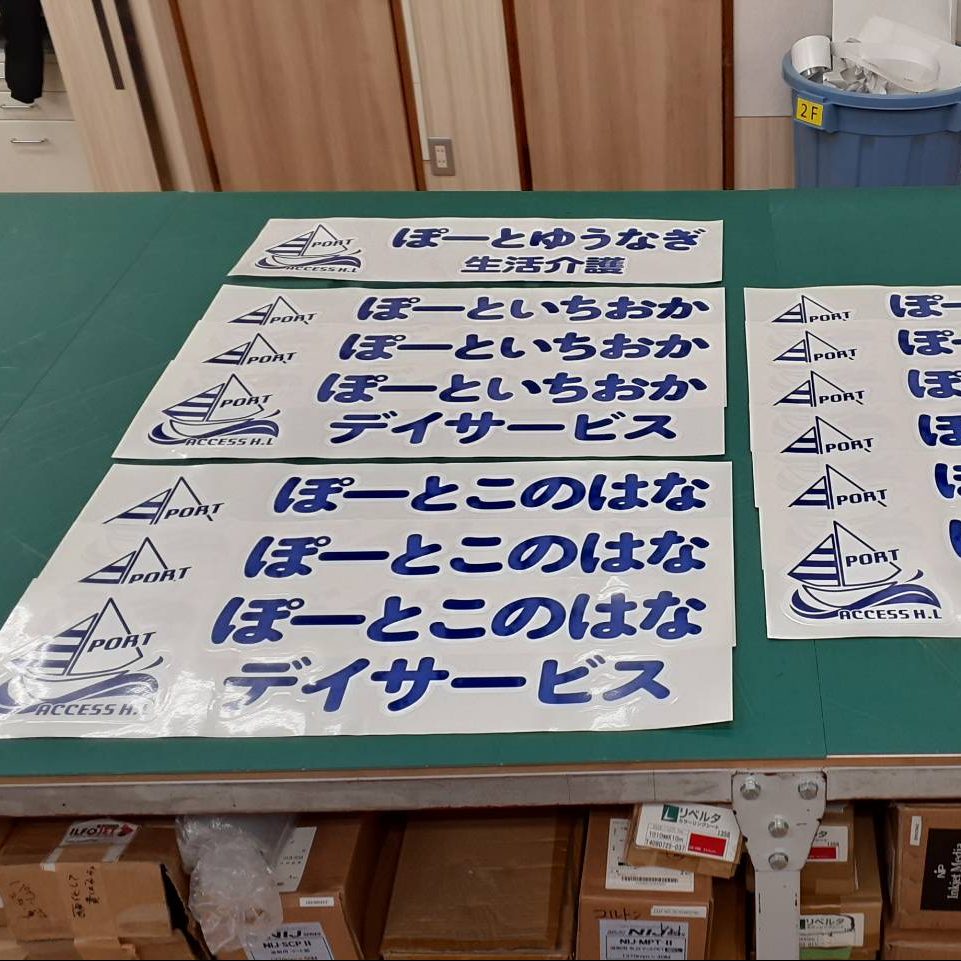 2F
PORT
ACCESS H.L
ぽーとゆうなぎ
生活介護
PORT
ぽーといちおか
PORT
ぽーといちおか
PORT
ACCESS H.L
ぽーといちおか
デイサービス
PORT
ぽーとこのはな
PORT
ぽーとこのはな
PORT
ACCESS H.L
ぽーとこのはな
デイサービス
PORT
ぽー
PORT
ぽー
PORT
ぽ
PORT
ぽ
PORT
PORT
ACCESS H.L
ILFOJET
NIJ-SCP II
コルトン
NIJ
NIJ-MPT-II
リベルタ
リベルタ
Inkjet Media